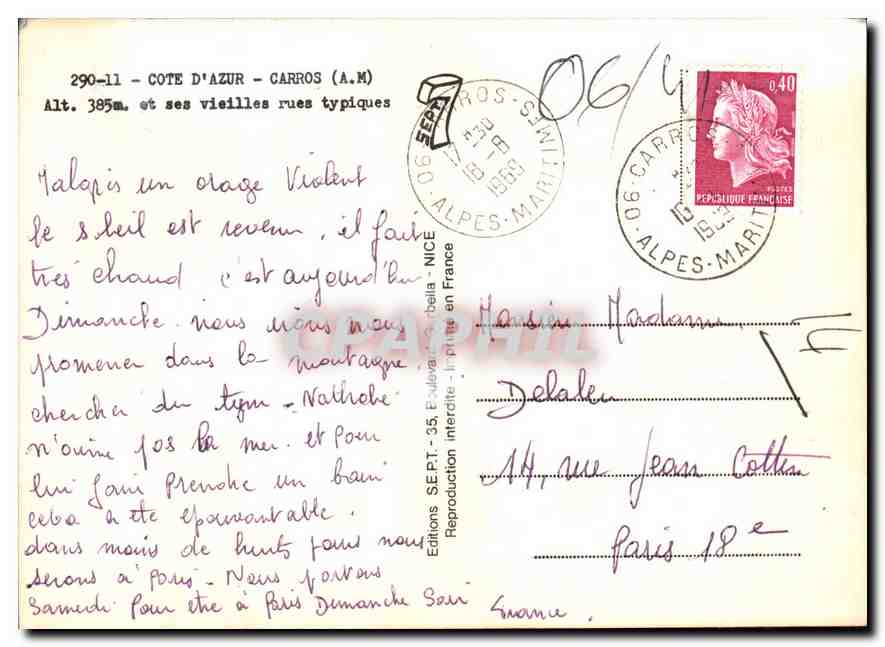 290-11 - COTE D'AZUR - CARROS (A.M)
Alt. 385m. et ses vieilles rues typiques
SEPT
CARROS - 06 - ALPES-MARITIMES
18-8
1969
06/41
0,40
POSTES
REPUBLIQUE FRANÇAISE
06-CARROS
ALPES-MARITIMES
1969
Malgris un orage Violent
le soleil est revenu, il fait
très chaud c'est aujourd'hui
Dimanche. nous irons nous
promener dans la montagne
chercher du tym - Nathalie
n'aime pas la mer. et pour
lui faire prendre un bain
cela a été épouvantable.
dans moins de huit jours nous
serons à Paris - Nous partons
Samedi Pour etre à Paris Dimanche Soir
Editions S.E.P.T. - 35, Boulevard Gorbella - NICE
Reproduction interdite - Imprimé en France
CPAPHIL
Monsieur Madame
Delaleu
14, rue Jean Cottin
Paris 18e
France.